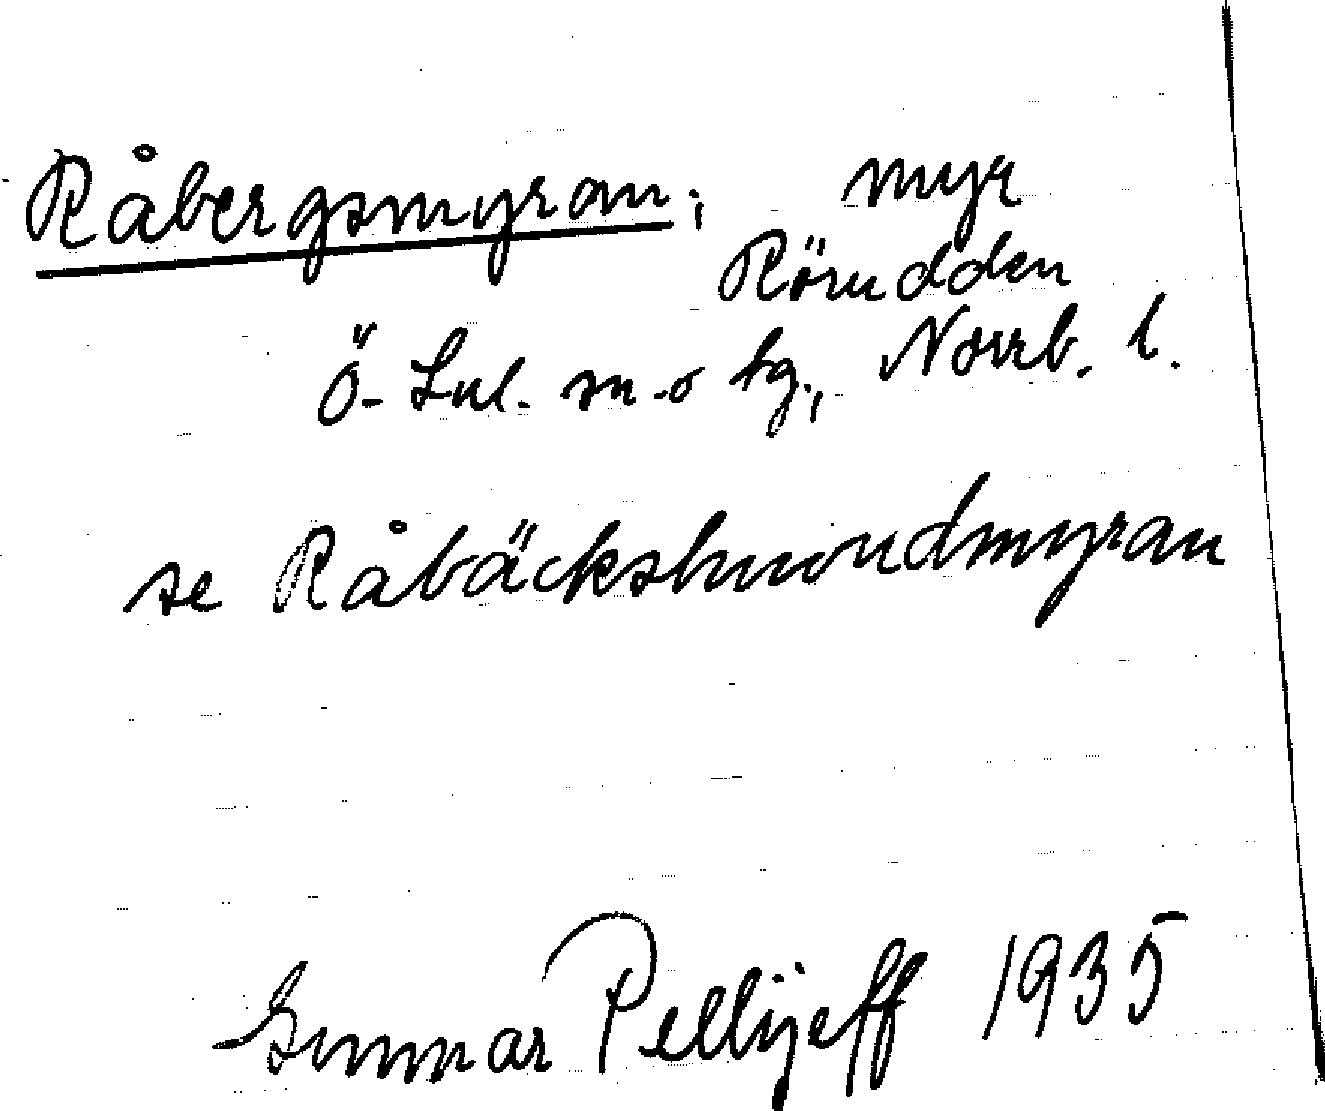 Råbergsmyran; myr
Rörudden
Ö- Lul. sn -o tg., Norrb. l.
se Råbäckshuvudmyran
Gunnar Pellijeff 1935